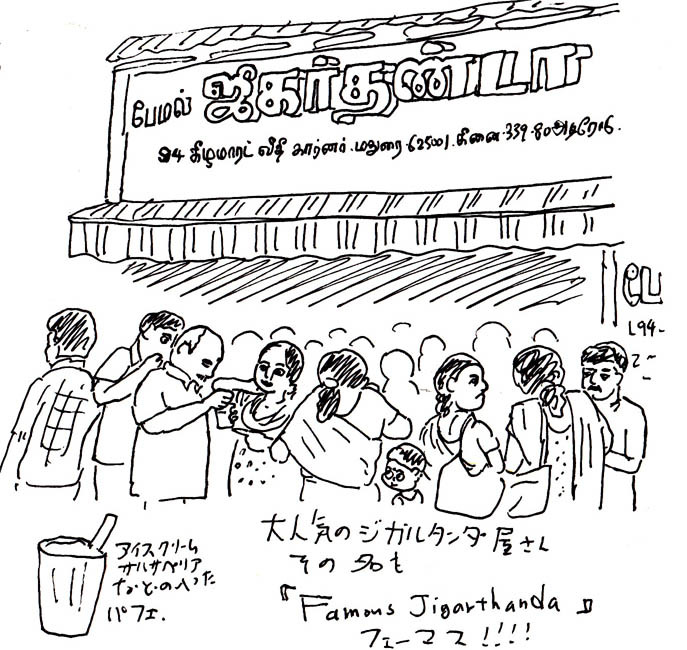 பேமஸ் ஜிகர்தண்டா
கீழமாரட் வீதி கார்னர். மதுரை-625001.
பே
アイスクリーム
サルサペリア
などの入った
パフェ.
大人気のジガルタンダ屋さん
その名も
『Famous Jigarthanda』
フェーマス!!!!